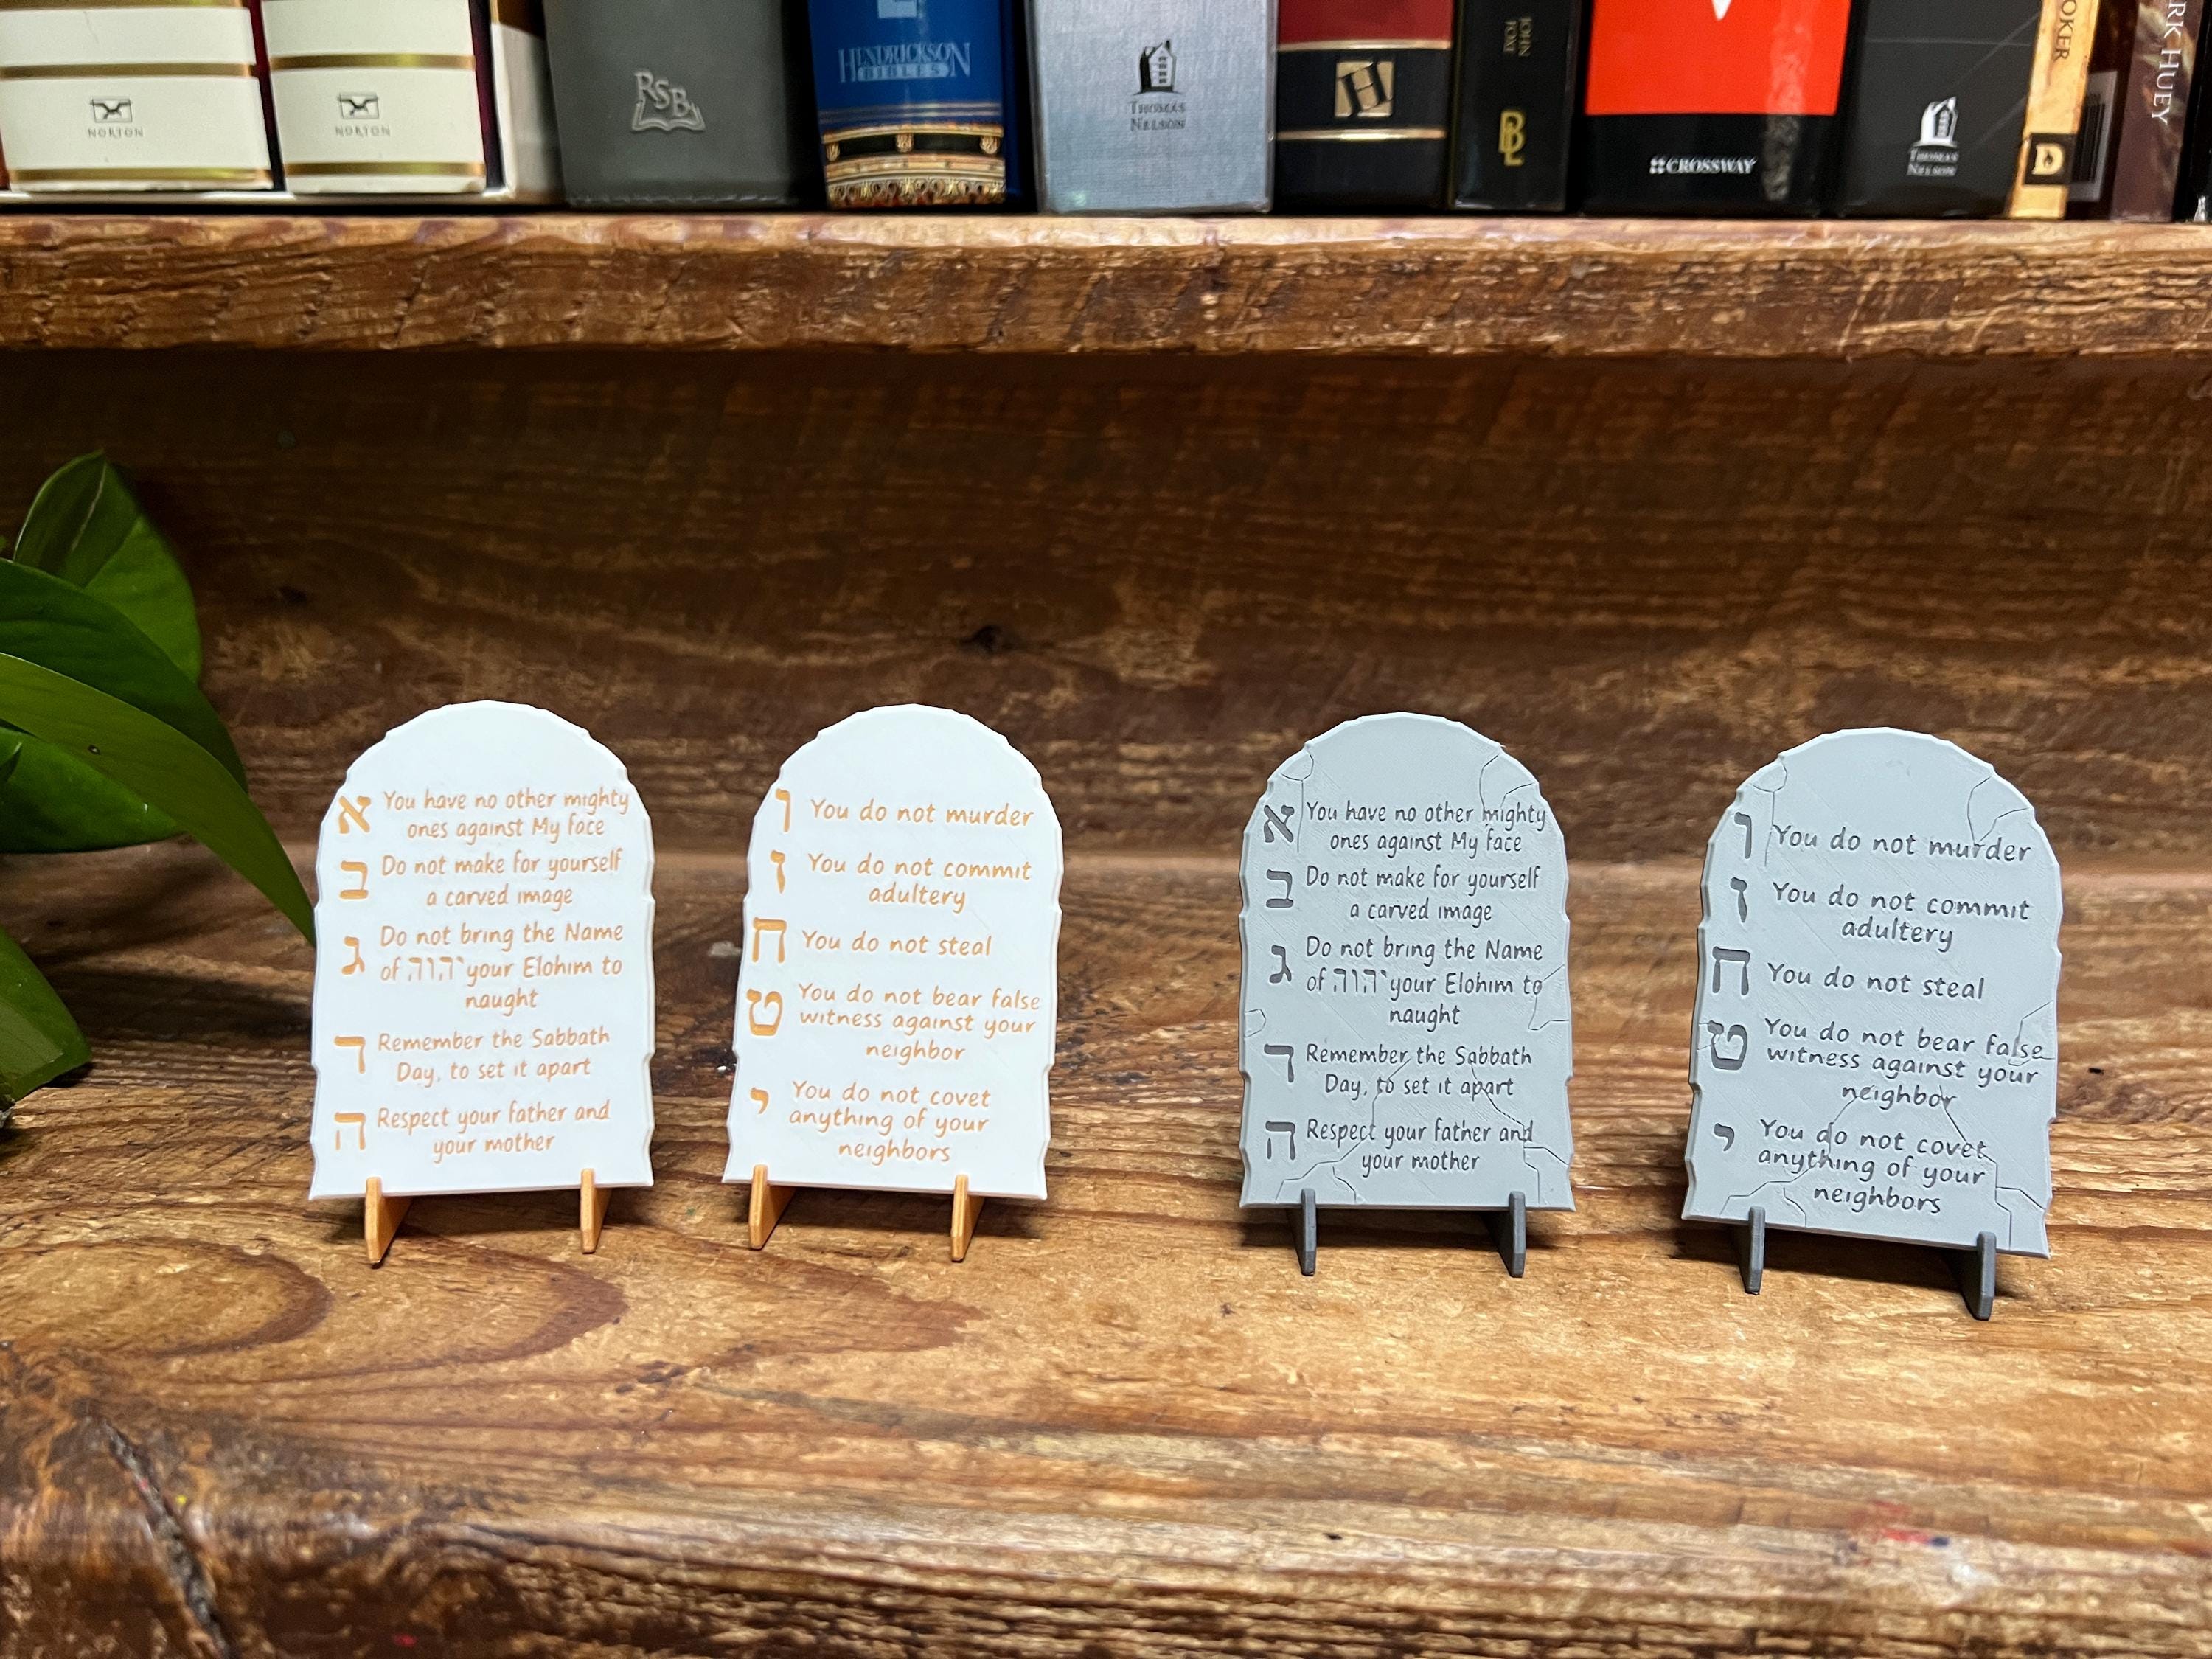 NORTON
NORTON
RSB
HENDRICKSON
BIBLES
THOMAS
NELSON
H
JOHN
BL
CROSSWAY
THOMAS
NELSON
OKER
D
RK HUEY
א You have no other mighty
ones against My face
ב Do not make for yourself
a carved image
ג Do not bring the Name
of יהוה your Elohim to
naught
ד Remember the Sabbath
Day, to set it apart
ה Respect your father and
your mother
ו You do not murder
ז You do not commit
adultery
ח You do not steal
ט You do not bear false
witness against your
neighbor
י You do not covet
anything of your
neighbors
א You have no other mighty
ones against My face
ב Do not make for yourself
a carved image
ג Do not bring the Name
of יהוה your Elohim to
naught
ד Remember the Sabbath
Day, to set it apart
ה Respect your father and
your mother
ו You do not murder
ז You do not commit
adultery
ח You do not steal
ט You do not bear false
witness against your
neighbor
י You do not covet
anything of your
neighbors